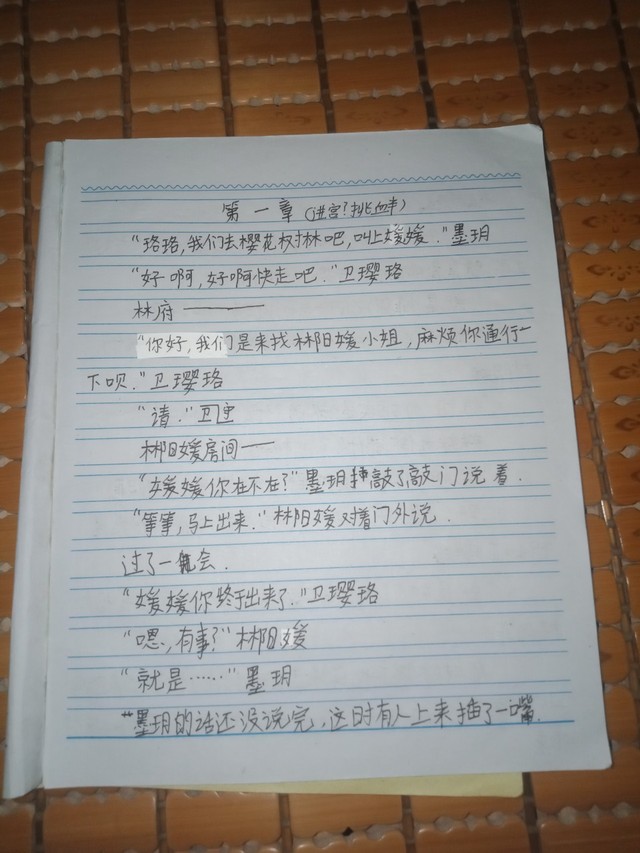 第一章(进宫?挑衅)
“珞珞,我们去樱花树林吧,叫上媛媛.”墨玥
“好啊,好啊快走吧.”卫璎珞
林府——
“你好,我们是来找林阳媛小姐,麻烦你通行一
下呗.”卫璎珞
“请.”卫
林阳媛房间——
“媛媛你在不在?”墨玥敲了敲门说着.
“等等,马上出来.”林阳媛对着门外说.
过了一会.
“媛媛你终于出来了.”卫璎珞
“嗯,有事?”林阳媛
“就是……”墨玥
墨玥的话还没说完,这时有人上来插了一嘴.